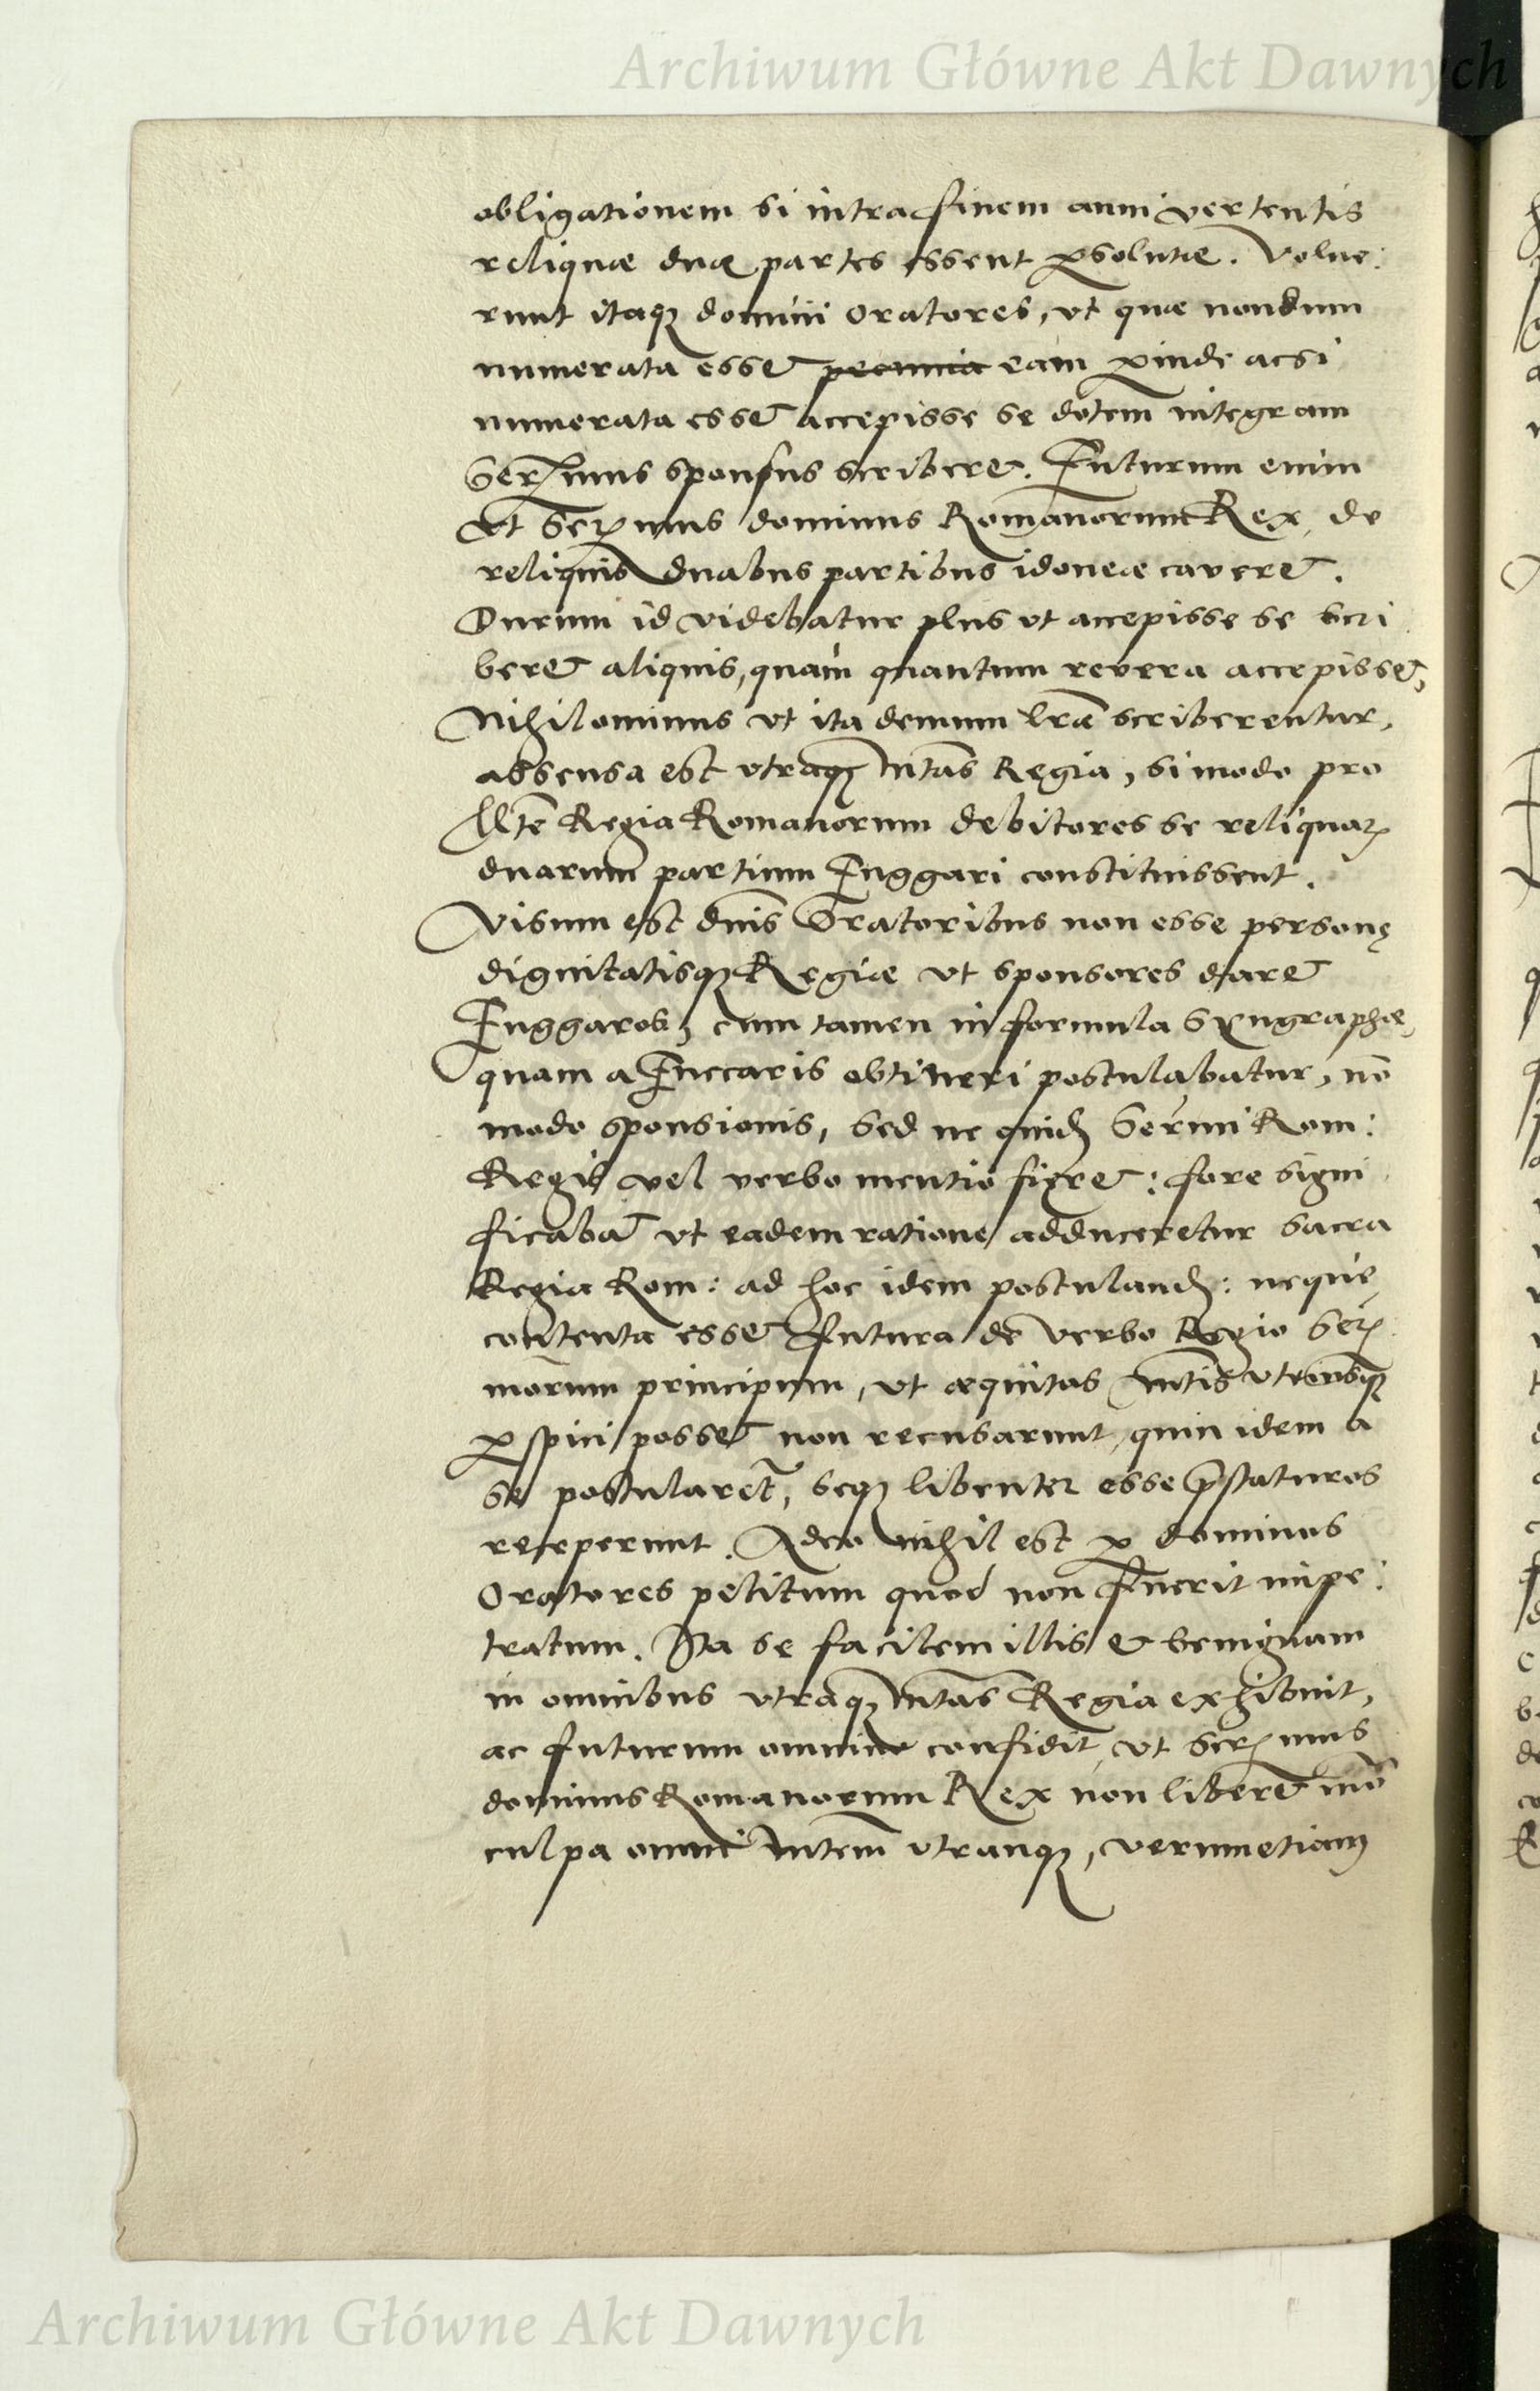 Archiwum Główne Akt Dawnych
obligationem si intra finem anni vertentis
reliquæ duæ partes essent ꝑsolutæ. Volue:
runt itaqꝫ domini Oratores, vt quæ nondum
numerata esset pecunia eam ꝑinde acsi
numerata esset accepisse se dotem integram
Serꝫmus sponsus scriberet. Futurum enim
vt Serꝫmus dominus Romanorum Rex de
reliquis duabus partibus idoneæ caveret.
Durum id videbatur plus vt accepisse se scri
beret aliquis, quam quantum revera accepisset,
Nihilominus vt ita demum lr̃æ scriberentur,
assensa est vtraqꝫ Mtas Regia, si modo pro
Mte Regia Romanorum debitores se reliquaꝝ
duarum partium Fuggari constituissent.
Visum est dnis Oratoribus non esse personę
dignitatisqꝫ Regiæ vt sponsores daret
Fuggaros, cum tamen in formula syngraphæ,
quam a Fuccaris obtineri postulabatur, nō
modo sponsionis, sed ne quidꝫ Sermi Rom:
Regis vel verbo mentio fieret: fore signi
ficabāt vt eadem ratione adduceretur sacra
Regia Rom: ad hoc idem postulandꝫ: neque
contenta esset futura de verbo Regio Serꝫ
morum principum, vt æquitas Mtis vtriusqꝫ
ꝑspici posset non recusarunt, quin idem a
se postularet, seqꝫ libenter esse p̃staturos
receperunt. Adeo nihil est ꝑ dominos
Oratores petitum quod non fuerit impe:
tratum. Ita se facilem illis & benignam
in omnibus vtraqꝫ Mtas Regia exhibuit,
ac futurum omnino confidit, vt Serꝫmus
dominus Romanorum Rex non liberet mō
culpa omni Mtem vtranqꝫ, verumetiam
Archiwum Główne Akt Dawnych